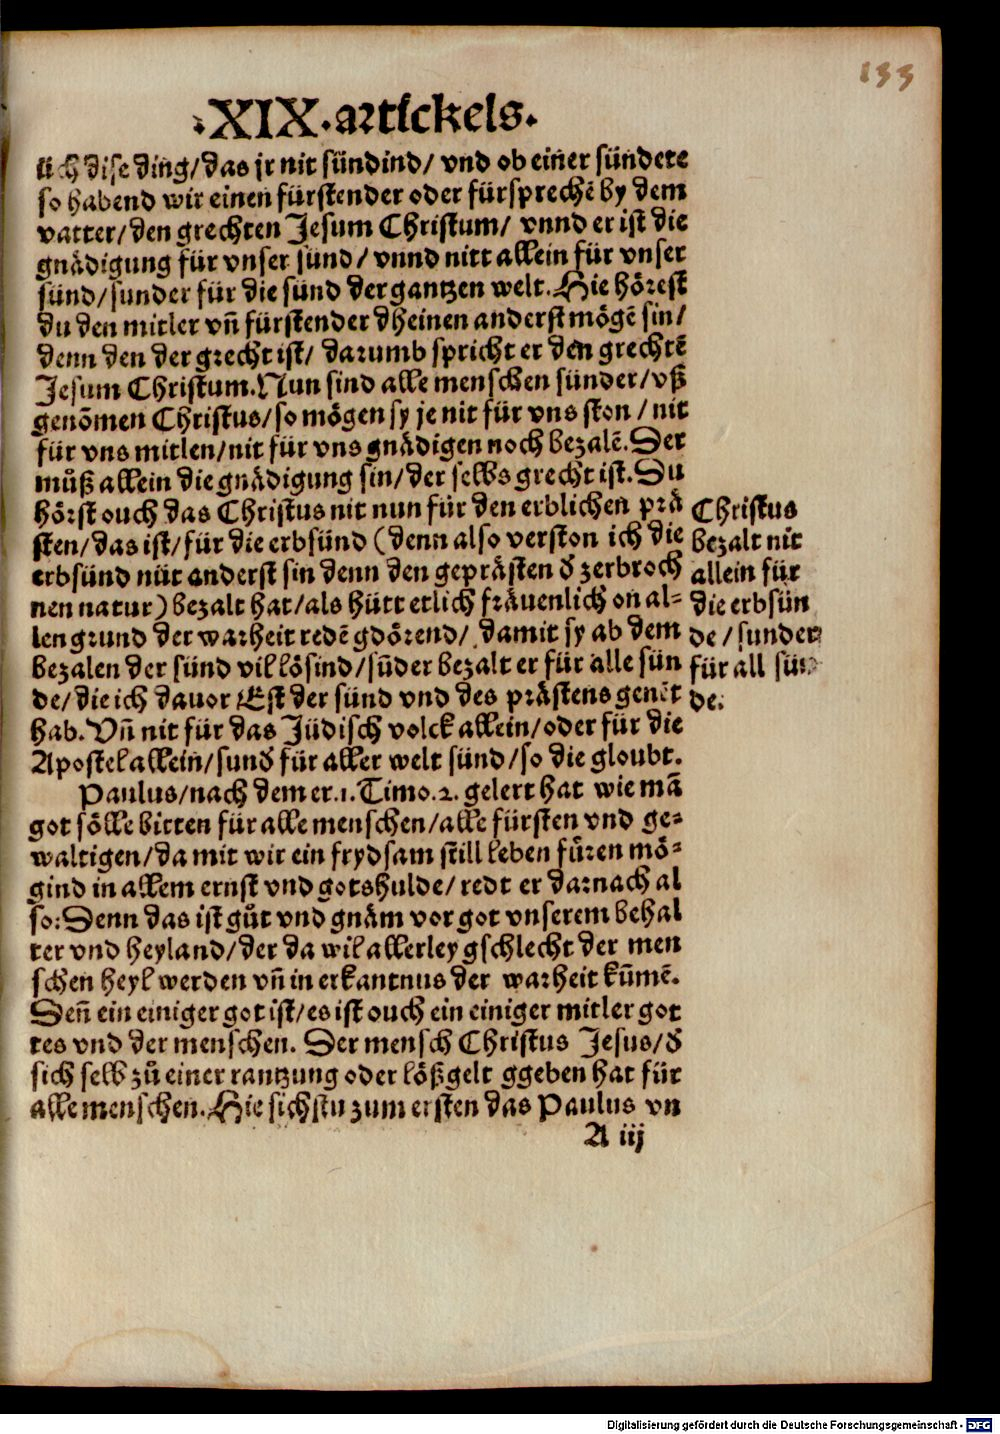 133
.XIX.artickels.
lich dise ding/das jr nit sündind/ vnd ob einer sündete
so habend wir einen fürstender oder fürsprechē by dem
vatter/den grechten Jesum Christum/ vnnd er ist die
gnädigung für vnser sünd/ vnnd nitt allein für vnser
sünd/sunder für die sünd der gantzen welt. Hie hörest
du den mitler vn̄ fürstender dheinen anderst mögē sin/
denn den der grecht ist/ darumb spricht er den grechtē
Jesum Christum. Nun sind alle menschen sünder/vß
genōmen Christus/so mögen sy je nit für vns ston/nit
für vns mitlen/nit für vns gnädigen noch bezalē. Der
můß allein die gnädigung sin/der selbs grecht ist. Du
hörst ouch das Christus nit nun für den erblichen prä
sten/das ist/für die erbsünd (denn also verston ich die
erbsünd nüt anderst sin denn den geprästen d̄ zerbroch
nen natur) bezalt hat/als hütt etlich fräuenlich on al-
len grund der warheit redē gdörend/ damit sy ab dem
bezalen der sünd vil lösind/sūder bezalt er für alle sün
de/die ich dauor Est der sünd vnd des prästens genēt
hab. Vn̄ nit für das Jüdisch volck allein/oder für die
Apostel allein/sund̄ für aller welt sünd/so die gloubt.
Paulus/nach dem er.1.Timo.2. gelert hat wie mā
got sölle bitten für alle menschen/alle fürsten vnd ge-
waltigen/da mit wir ein frydsam still leben fůren mö-
gind in allem ernst vnd gotshulde/redt er darnach al
so: Denn das ist gůt vnd gnäm vor got vnserem behal
ter vnd heyland/der da wil allerley gschlecht der men
schen heyl werden vn̄ in erkantnus der warheit kūmē.
Den̄ ein einiger got ist/es ist ouch ein einiger mitler got
tes vnd der menschen. Der mensch Christus Jesus/d̄
sich selb zů einer rantzung oder lößgelt ggeben hat für
alle menschen. Hie sichstu zum ersten das Paulus vn
A iij
Christus
bezalt nit
allein für
die erbsün
de/sunder
für all sün
de.
Digitalisierung gefördert durch die Deutsche Forschungsgemeinschaft - DFG